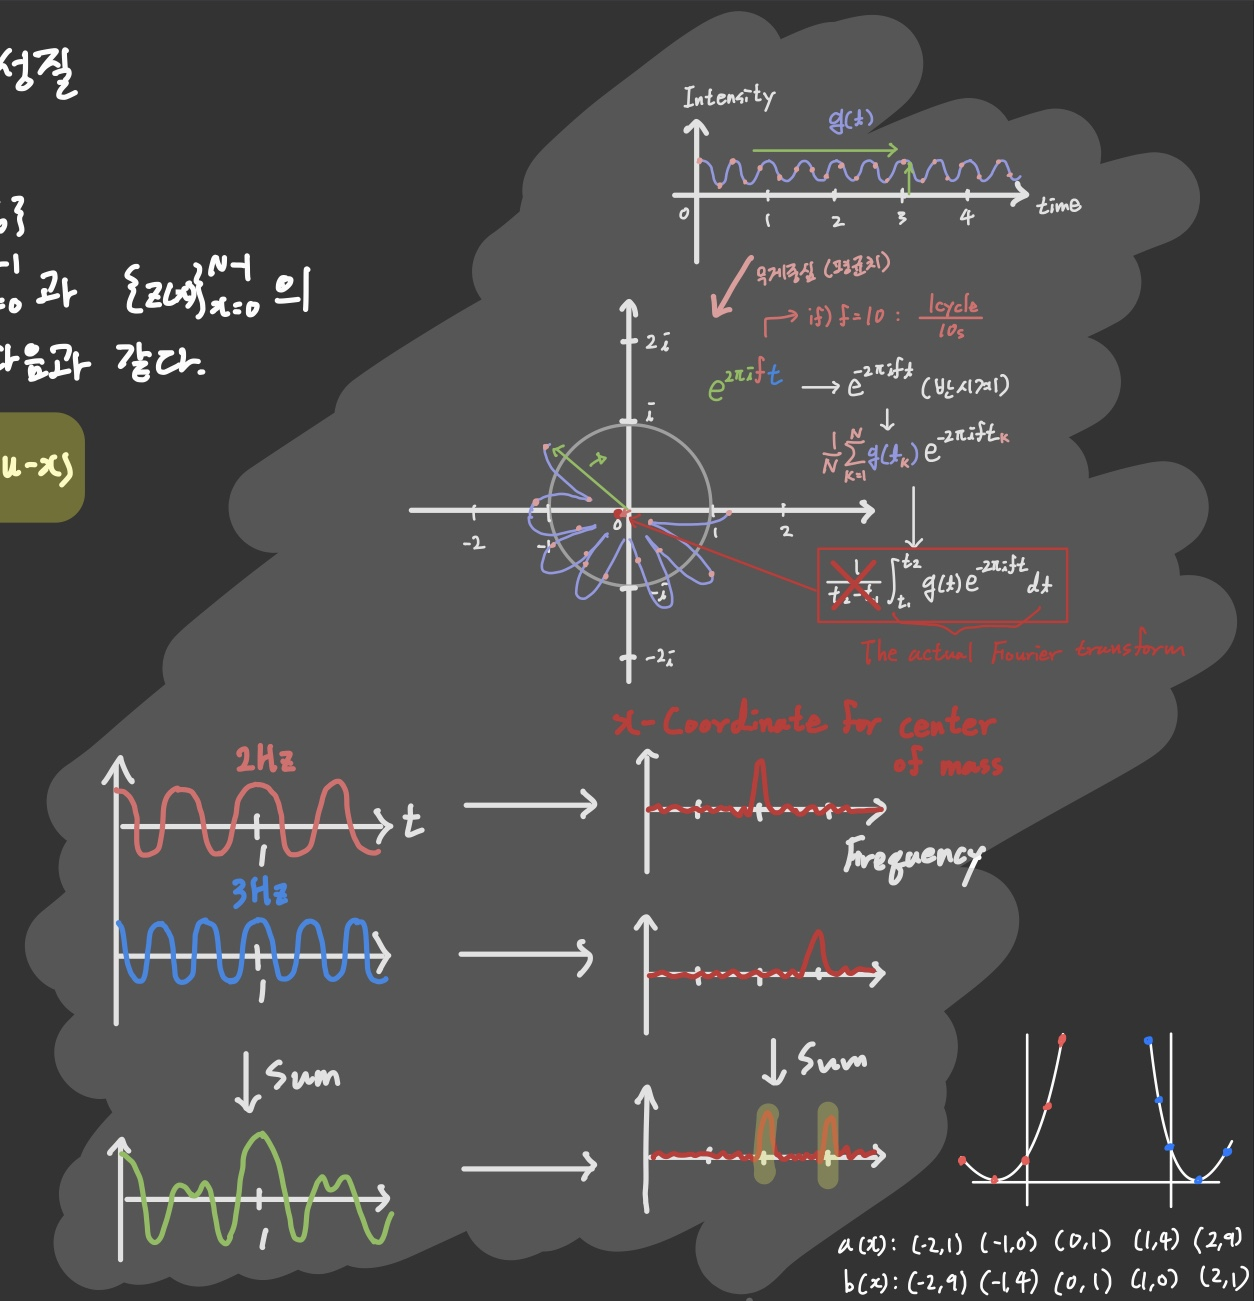 성질
}
-1
=0 과 {z(x)}_{x=0}^{N-1} 의
다음과 같다.
u-x)
Intensity
g(t)
0 1 2 3 4 time
무게중심 (평균치)
if) f=10 : 1cycle/10s
e^{2πift} → e^{-2πift} (반시계)
↓
1/N Σ_{k=1}^{N} g(t_k) e^{-2πift_k}
2i
i
-2 -1 0 1 2
-i
-2i
1/(t₂-t₁) ∫_{t₁}^{t₂} g(t)e^{-2πift} dt
The actual Fourier transform
x-Coordinate for center
of mass
2Hz
t
1
Frequency
3Hz
1
Sum
Sum
1
a(x): (-2,1) (-1,0) (0,1) (1,4) (2,9)
b(x): (-2,9) (-1,4) (0,1) (1,0) (2,1)